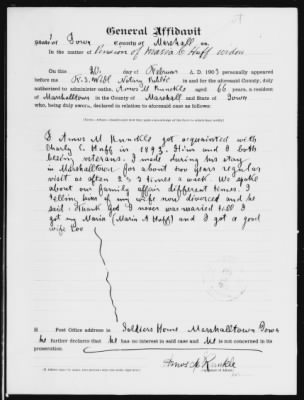 General Affidavit
State of Iowa County of Marshall, ss.
In the matter of Pension of Maria C Huff widow
On this 20 day of Februar A. D. 1903 personally appeared
before me Notary Public in and for the aforesaid County, duly
authorized to administer oaths, Amos M Runckle aged 66 years, a resident
of Marshalltown in the County of Marshall and State of Iowa
who, being duly sworn, declared in relation to aforesaid case as follows:
I Amos M Runckle got acquainted with
Charly C. Huff in 1893. Him and I both
being veterans. I made during his stay
in Marshalltown for about two years regular
visit as often 2 & 3 times a week. We spoke
about our family affair different times. I
telling him of my wife now divorced and he
said: Thank God I never was married till I
got my Maria (Maria A Huff) and I got a good
wife too
Post Office address is Soldiers Home Marshalltown Iowa
he further declares that he has no interest in said case and is not concerned in its
prosecution.
Amos M Runckle